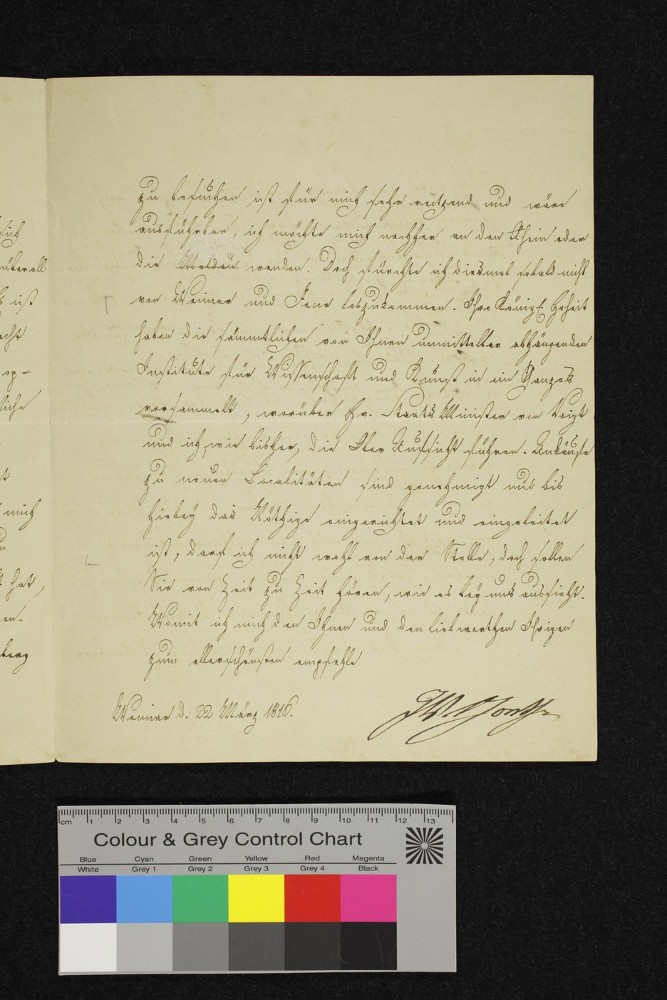 sich
überall
ist
acht
op-
liche
mich
hat,
en.
berg
zu besuchen ist für mich sehr reitzend und wäre
ausführbar, ich möchte mich nachher an den Rhein oder
die Moldau wenden. Doch fürchte ich diesmal sobald nicht
von Weimar und Jena loszukommen. Ihro Königl. Hoheit
haben die sämmtlichen von Ihnen unmittelbar abhängenden
Institute für Wissenschaft und Kunst in ein Ganzes
versammelt, worüber Hr. Staats Minister von Voigt
und ich, wie bisher, die Ober Aufsicht führen. Ankäufe
zu neuen Localitäten sind genehmigt und bis
hiebey das Nöthige eingerichtet und eingeleitet
ist, darf ich nicht wohl von der Stelle, doch sollen
Sie von Zeit zu Zeit hören, wie es bey uns aussieht.
Womit ich mich denn Ihnen und den liebwerthen Ihrigen
zum allerschönsten empfehle
Weimar d. 22 März 1816.
JWvGoethe
cm 1 2 3 4 5 6 7 8 9 10 11 12 13
Colour & Grey Control Chart
Blue Cyan Green Yellow Red Magenta
White Grey 1 Grey 2 Grey 3 Grey 4 Black